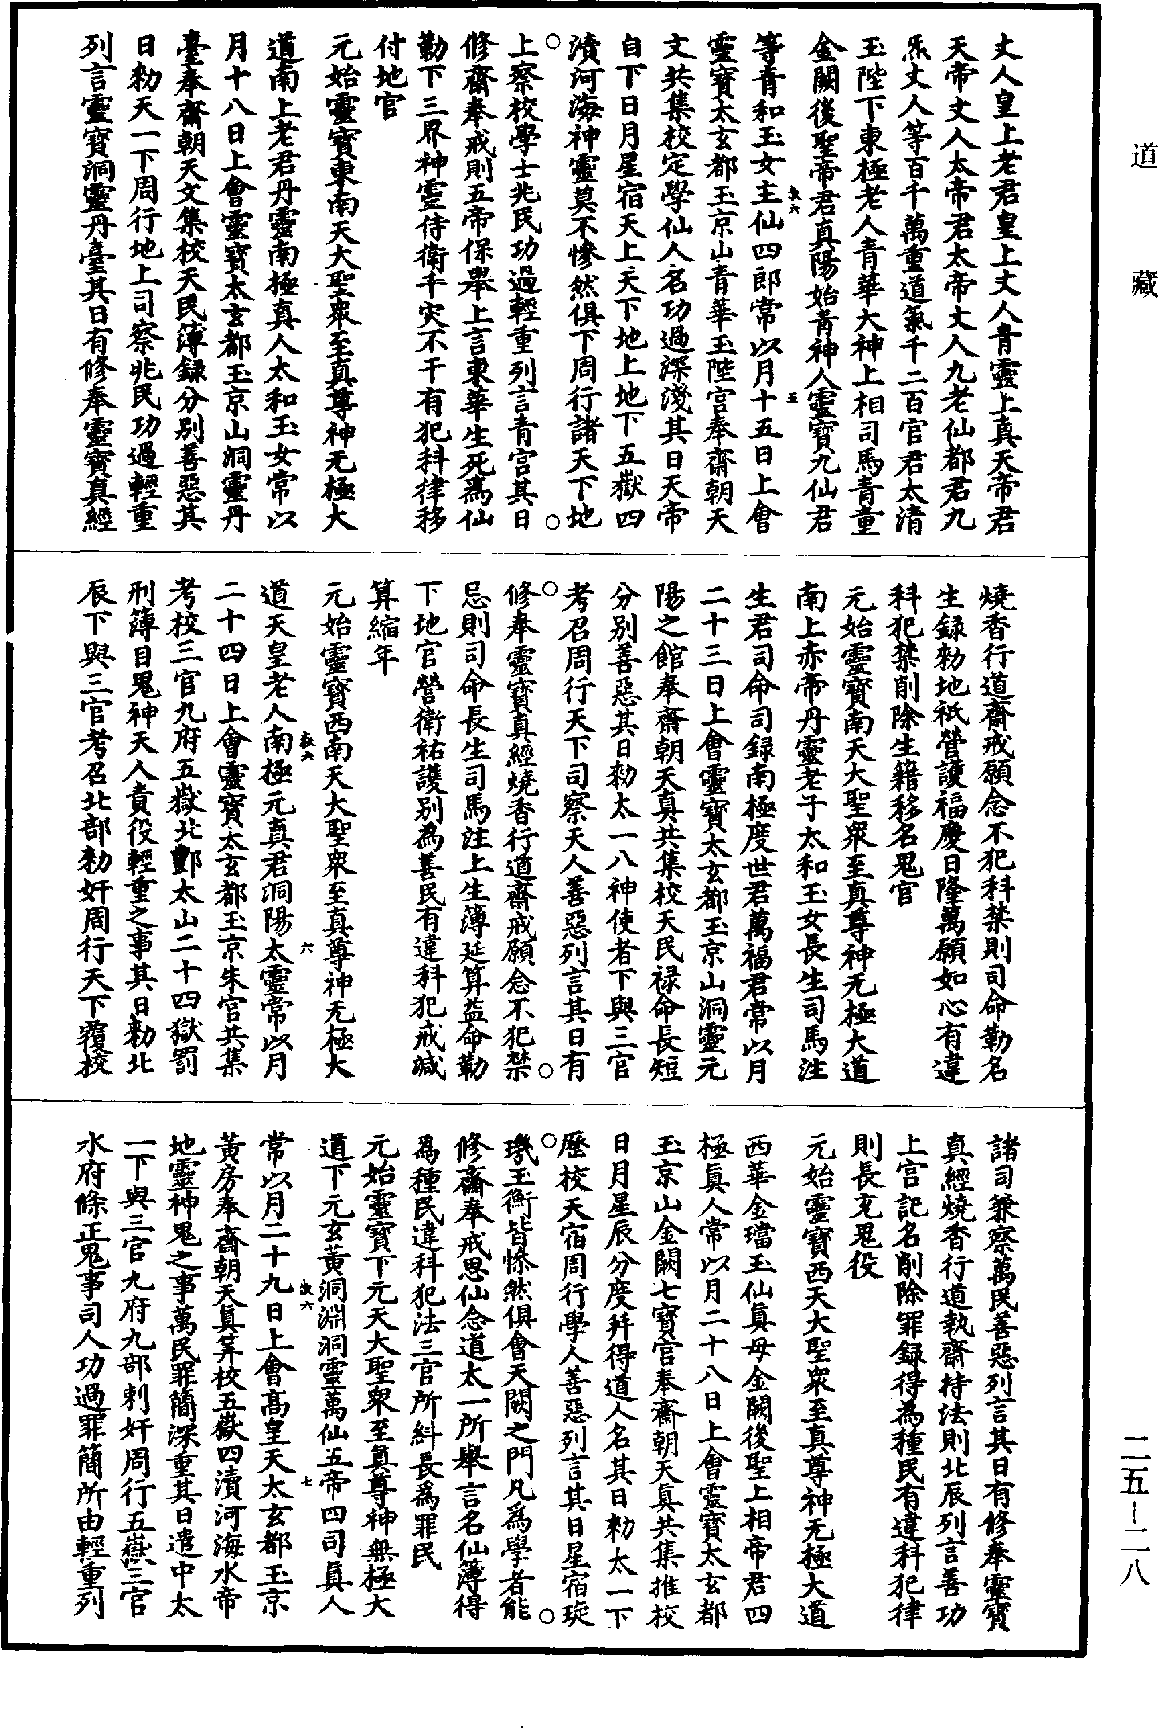 道藏
丈人皇上老君皇上丈人青靈上真天帝君
天帝丈人太帝君太帝丈人九老仙都君九
炁丈人等百千萬重道氣千二百官君太清
玉陛下東極老人青華大神上相司馬青童
金闕後聖帝君真陽始青神人靈寶九仙君
等青和玉女主仙四郎常以月十五日上會
靈寶太玄都玉京山青華玉陛宮奉齋朝天
文共集校定學仙人名功過深淺其日天帝
自下日月星宿天上天下地上地下五嶽四
瀆河海神靈莫不慘然俱下周行諸天下地
上察校學士兆民功過輕重列言青宮其日
修齋奉戒則五帝保舉上言東華生死為仙
勒下三界神靈侍衛千灾不干有犯科律移
付地官
元始靈寶東南天大聖眾至真尊神无極大
道南上老君丹靈南極真人太和玉女常以
月十八日上會靈寶太玄都玉京山洞靈丹
臺奉齋朝天文集校天民簿録分別善惡其
日勑天一下周行地上司察兆民功過輕重
列言靈寶洞靈丹臺其日有修奉靈寶真經
燒香行道齋戒願念不犯科禁則司命勒名
生録勑地祇營護福慶日隆萬願如心有違
科犯禁削除生籍移名鬼官
元始靈寶南天大聖眾至真尊神无極大道
南上赤帝丹靈老子太和玉女長生司馬注
生君司命司録南極度世君萬福君常以月
二十三日上會靈寶太玄都玉京山洞靈元
陽之館奉齋朝天真共集校天民禄命長短
分別善惡其日勑太一八神使者下與三官
考召周行天下司察天人善惡列言其日有
修奉靈寶真經燒香行道齋戒願念不犯禁
忌則司命長生司馬注上生簿延算益命勒
下地官營衛祐護別為善民有違科犯戒減
算縮年
元始靈寶西南天大聖眾至真尊神无極大
道天皇老人南極元真君洞陽太靈常以月
二十四日上會靈寶太玄都玉京朱宮共集
考校三官九府五嶽北酆太山二十四獄罰
刑簿目鬼神天人責役輕重之事其日勑北
辰下與三官考召北部勑奸周行天下覆校
諸司兼察萬民善惡列言其日有修奉靈寶
真經燒香行道執齋持法則北辰列言善功
上宮記名削除罪録得為種民有違科犯律
則長充鬼役
元始靈寶西天大聖眾至真尊神无極大道
西華金璫玉仙真母金闕後聖上相帝君四
極真人常以月二十八日上會靈寶太玄都
玉京山金闕七寶宮奉齋朝天真共集推校
日月星辰分度并得道人名其日勑太一下
歷校天宿周行學人善惡列言其日星宿琁
璣玉衡皆悚然俱會天闕之門凡為學者能
修齋奉戒思仙念道太一所舉言名仙簿得
為種民違科犯法三官所糾長為罪民
元始靈寶下元天大聖眾至真尊神無極大
道下元玄黃洞淵洞靈萬仙五帝四司真人
常以月二十九日上會高皇天太玄都玉京
黃房奉齋朝天真筭校五嶽四瀆河海水帝
地靈神鬼之事萬民罪簡深重其日遣中太
一下與三官九府九部刺奸周行五嶽三官
水府條正鬼事司人功過罪簡所由輕重列
二五－二八